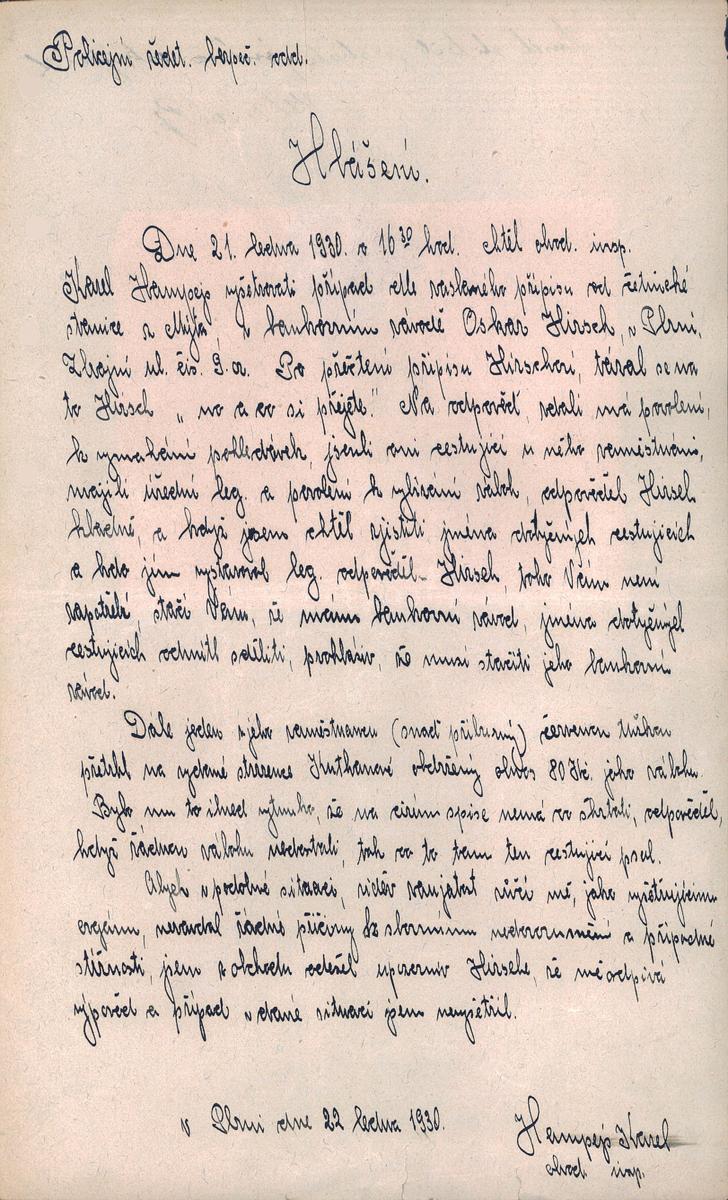 Policejní ředit. bezpeč. odd.
Hlášení.
Dne 21. ledna 1930. o 16 30 hod. chtěl obvod. insp.
Karel Hampejs vyšetřovati případ dle zaslaného přípisu od četnické
stanice z Mýta, v bankovním závodě Oskar Hirsch, v Plzni,
Zbrojní ul. čís. 9.a. Po přečtení přípisu Hirschovi, tázal se na
to Hirsch „no a co si přejete." Na odpověď, zdali má povolení,
k vymáhání pohledávek, jsouli oni cestující u něho zaměstnáni,
majíli úřední leg. a povolení k vybírání záloh, odpověděl Hirsch
kladně, a když jsem chtěl zjistiti jména dotyčných cestujících
a kdo jim vystavoval leg. odpověděl Hirsch, toho Vám není
zapotřebí, stačí Vám, že máme bankovní závod, jména dotyčných
cestujících odmítl sděliti, prohlásiv, že musí stačiti jeho bankovní
závod.
Dále jeden z jeho zaměstnanců (snad příbuzný) červenou tužkou
přetrhl na vydané stvrzence Kuthanové obdržený obnos 80 Kč. jako zálohu.
Bylo mu to ihned vytknuto, že na cizím spise nemá co škrtati, odpověděl,
když žádnou zálohu nedostali, tak co to tam ten cestující psal.
Abych v podobné situaci, viděv zaujatost vůči mě, jako vyšetřujícímu
orgánu, nezavdal žádné příčiny ku slovnímu nedorozumění a případné
stížnosti, jsem z obchodu odešel upozorniv Hirsche, že mě odpírá
výpověď a případ v dané situaci jsem nevyšetřil.
v Plzni dne 22 ledna 1930.
Hampejs Karel
obvod. insp.